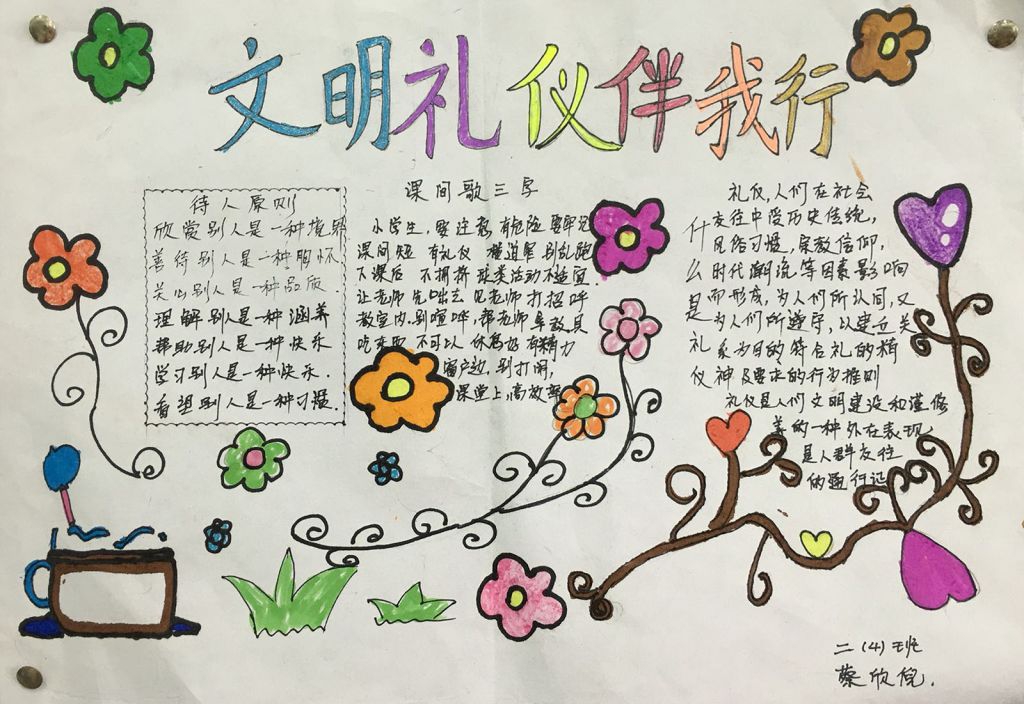 文明礼仪伴我行
待人原则
欣赏别人是一种境界
善待别人是一种胸怀
关心别人是一种品质
理解别人是一种涵养
帮助别人是一种快乐
学习别人是一种快乐.
看望别人是一种习惯.
课间歌三字
小学生,要注意,有危险 要牢记
课间短 有礼仪 楼道里 别乱跑
下课后 不拥挤 球类活动不适宜
让老师 先出去 见老师 打招呼
教室内,别喧哗,帮老师 拿教具
吃东西 不可以 休息好 有精力
窗户边,别打闹,
课堂上,高效率
礼仪,人们在社会
什交往中受历史传统,
风俗习惯,宗教信仰,
么时代潮流等因素影响
是而形成,为人们所认同,又
为人们所遵守,以建立关
礼系为目的符合礼的精
仪神及要求的行为准则
礼仪是人们文明建设和谨修
养的一种外在表现
是人群交往
的通行证
二(4)班
蔡欣倪.